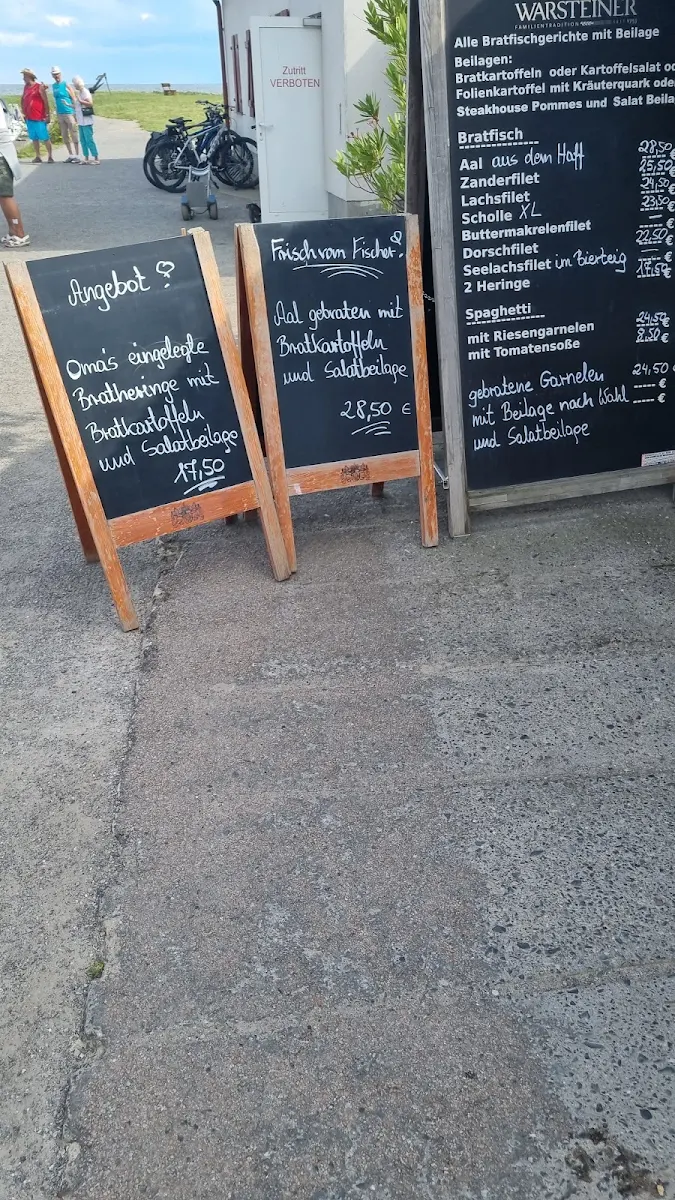 Zutritt
VERBOTEN
Angebot
Oma's eingelegte
Bratheringe mit
Bratkartoffeln
und Salatbeilage
17,50
Frisch vom Fischer
Aal gebraten mit
Bratkartoffeln
und Salatbeilage
28,50 €
WARSTEINER
FAMILIENTRADITION
Alle Bratfischgerichte mit Beilage
Beilagen:
Bratkartoffeln oder Kartoffelsalat
Folienkartoffel mit Kräuterquark oder
Steakhouse Pommes und Salat
Bratfisch
Aal aus dem Haff 28,50
Zanderfilet 25,50 €
Lachsfilet 24,50 €
Scholle XL 23,50 €
Buttermakrelenfilet — €
Dorschfilet 22,50 €
Seelachsfilet im Bierteig €
2 Heringe 17,50 €
Spaghetti
mit Riesengarnelen 24,50 €
mit Tomatensoße 8,50 €
gebratene Garnelen 24,50 €
mit Beilage nach Wahl ---- €
und Salatbeilage ---- €